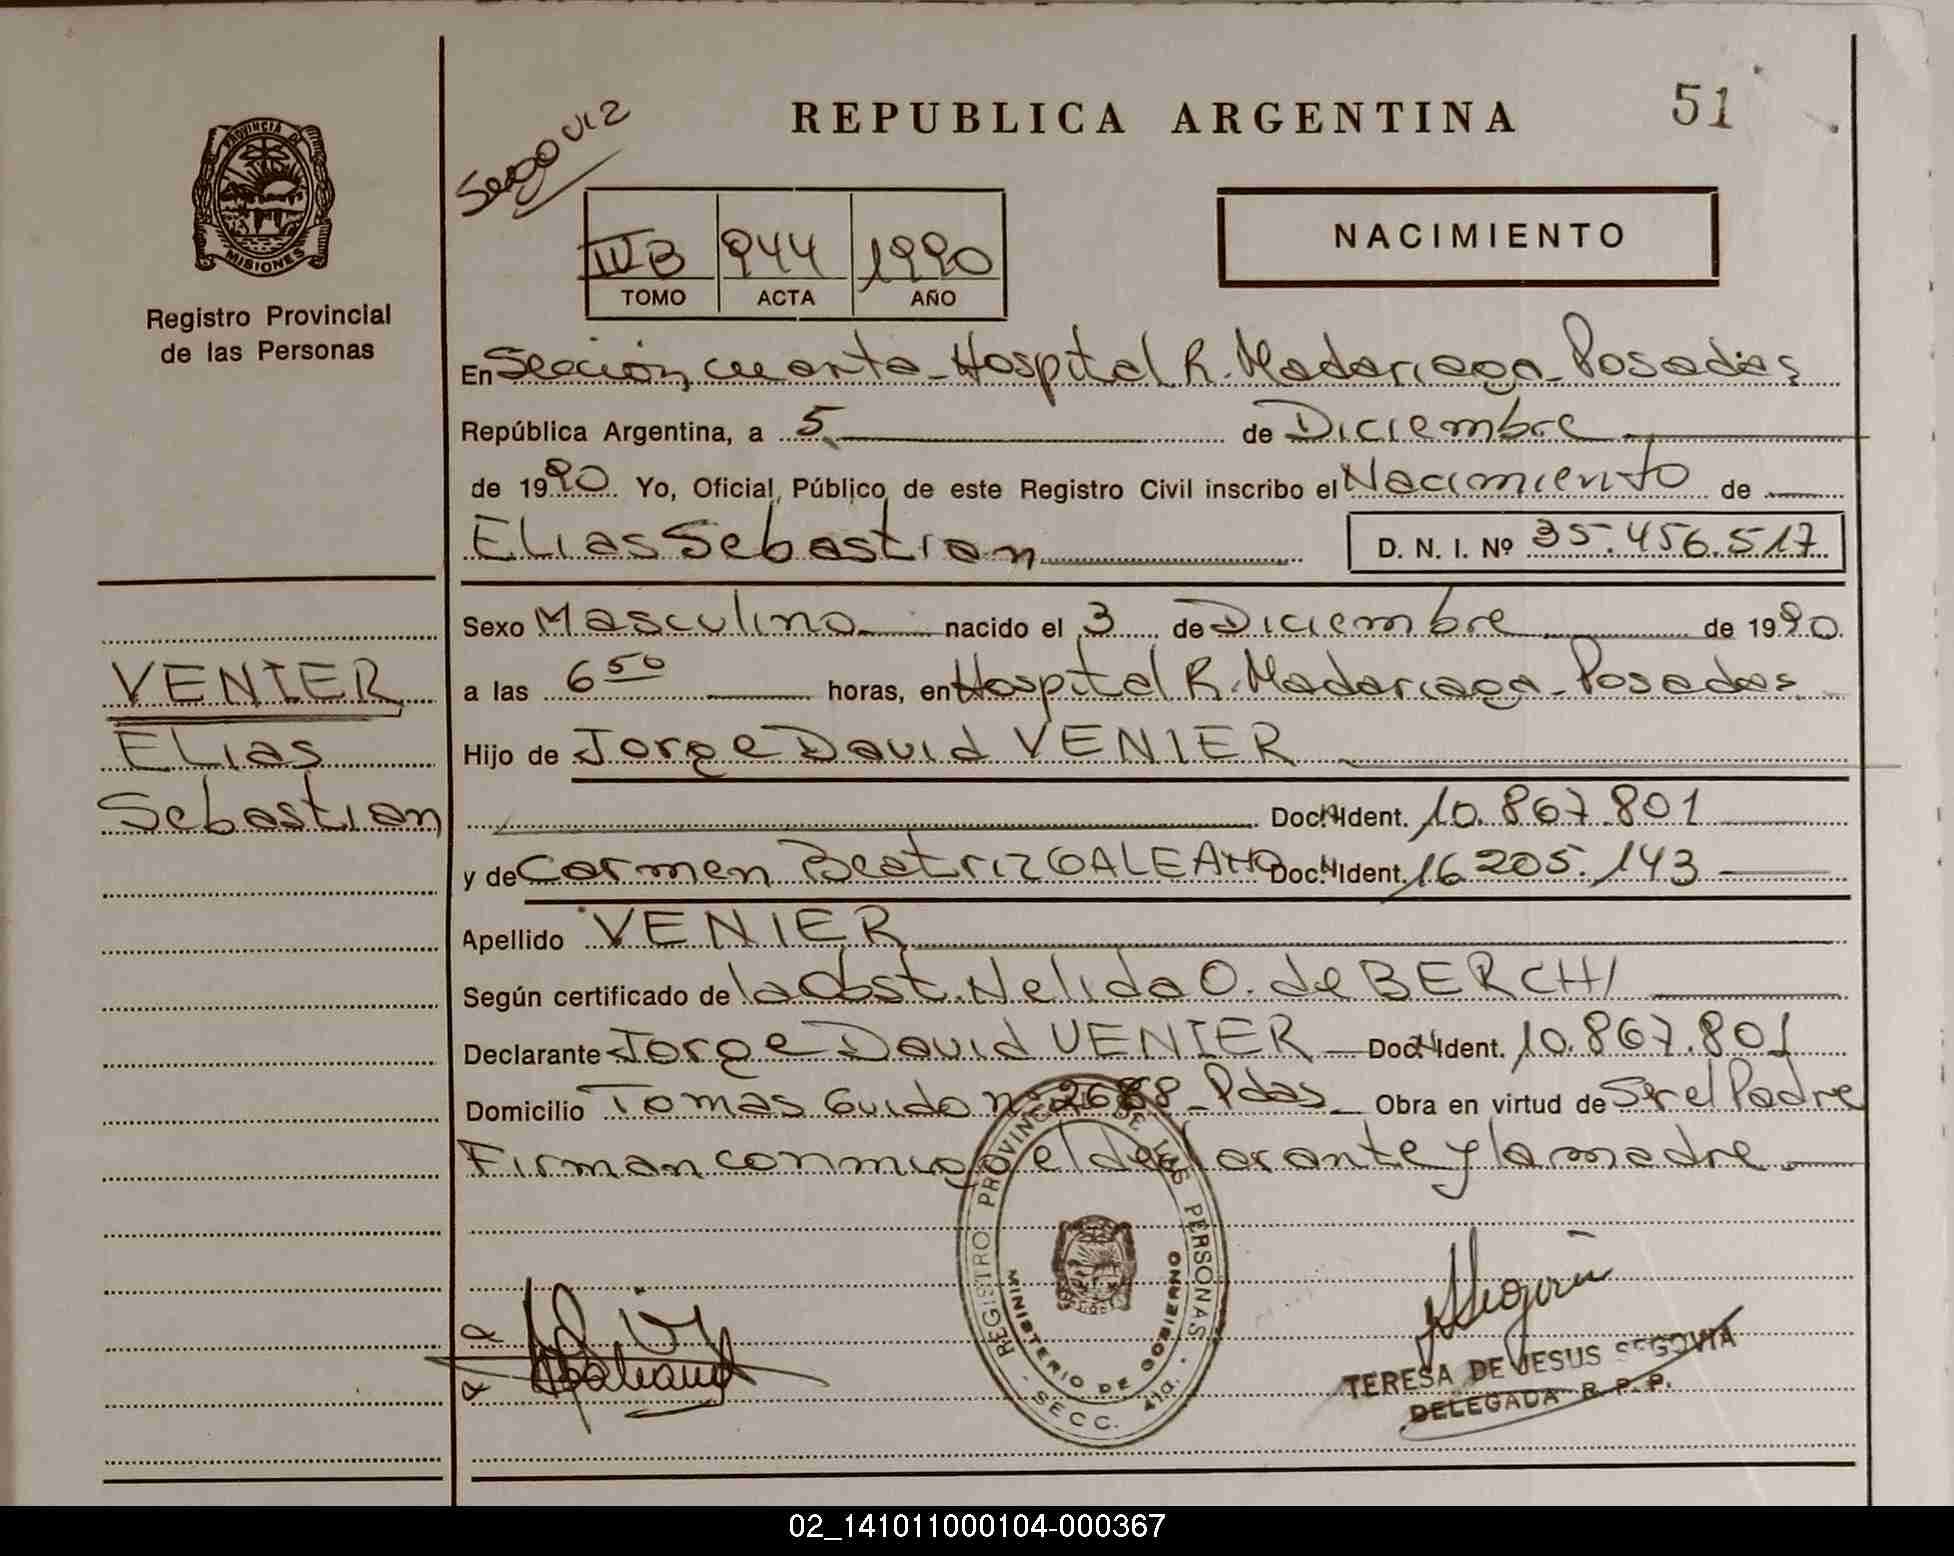 REPUBLICA ARGENTINA
51
PROVINCIA DE
MISIONES
Registro Provincial
de las Personas
Segovia
III B 944 1990
TOMO ACTA AÑO
NACIMIENTO
En Sección cuarta - Hospital R. Madariaga - Posadas
República Argentina, a 5 de Diciembre
de 1990. Yo, Oficial Público de este Registro Civil inscribo el Nacimiento de
Elias Sebastian D. N. I. Nº 35.456.517
Sexo Masculino nacido el 3 de Diciembre de 1990.
VENIER
Elias
Sebastian
a las 6 50 horas, en Hospital R. Madariaga - Posadas
Hijo de Jorge David VENIER
Doc. N Ident. 10.867.801
y de Carmen Beatriz GALEANO Doc. N Ident. 16.205.143
Apellido VENIER
Según certificado de la Obst. Nelida O. de BERCHI
Declarante Jorge David VENIER - Doc. N Ident. 10.867.801
Domicilio Tomas Guido nº 2688 - Pdas - Obra en virtud de Ser el Padre
Firman conmigo el declarante y la madre
REGISTRO PROVINCIAL DE LAS PERSONAS
MINISTERIO DE GOBIERNO
SECC. 4ta.
TERESA DE JESUS SEGOVIA
DELEGADA R. P. P.
02_141011000104-000367